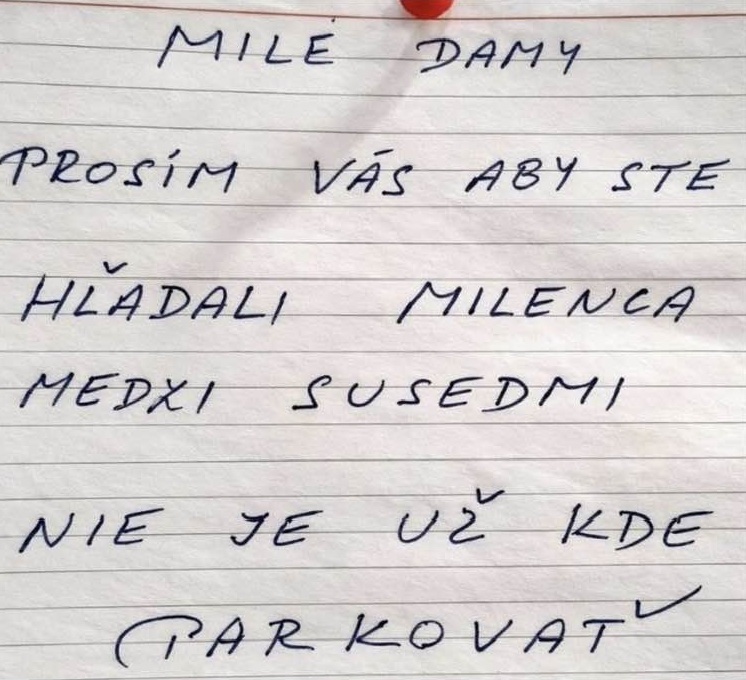 MILÉ DAMY
PROSÍM VÁS ABY STE
HĽADALI MILENCA
MEDZI SUSEDMI
NIE JE UŽ KDE
PARKOVAŤ